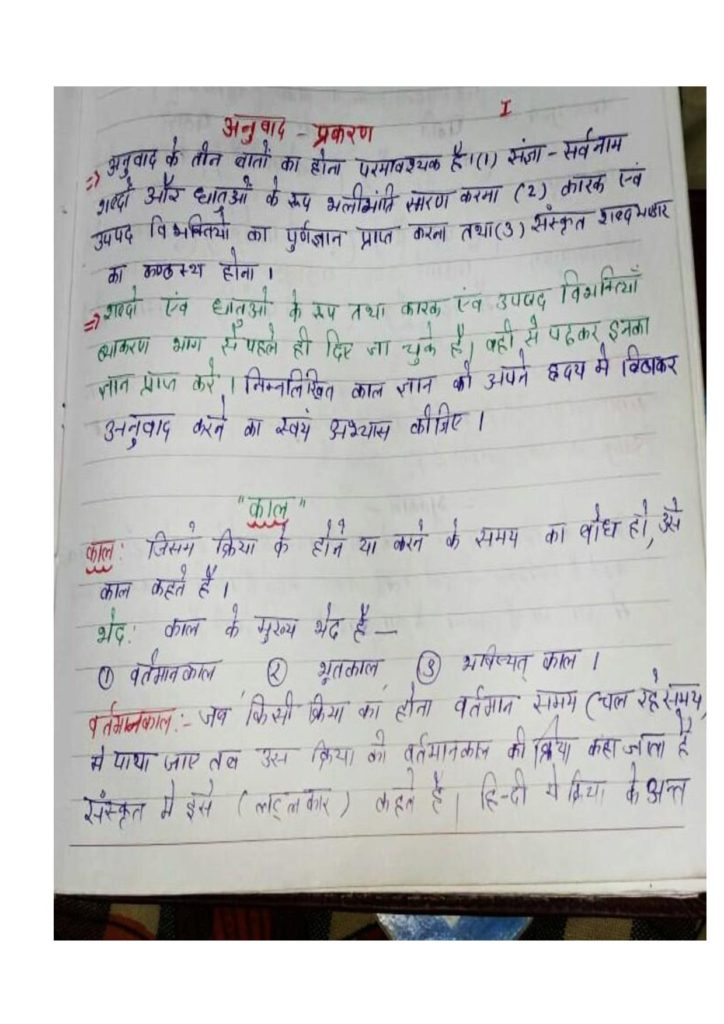 I
अनुवाद - प्रकरण
=> अनुवाद के तीन बातों का होना परमावश्यक है। (1) संज्ञा - सर्वनाम
शब्दो और धातुओं के रूप भलीभांति स्मरण करना (2) कारक एंव
उपपद विभक्तियों का पुर्णज्ञान प्राप्त करना तथा (3) संस्कृत शब्दभण्डार
का कण्ठस्थ होना ।
=> शब्दो एंव धातुओ के रूप तथा कारक एंव उपपद विभक्तियाँ
व्याकरण भाग से पहले ही दिए जा चुके है। वही से पढकर इनका
ज्ञान प्राप्त करें । निम्नलिखित काल ज्ञान को अपने ह्रदय मे बिठाकर
अनुवाद करने का स्वयं अभ्यास कीजिए ।
"काल"
काल: जिसमे क्रिया के होने या करने के समय का बोध हो, उसे
काल कहते है ।
भेद: काल के मुख्य भेद है —
① वर्तमानकाल ② भूतकाल ③ भविष्यत् काल ।
वर्तमानकाल:- जब किसी क्रिया का होना वर्तमान समय (चल रहे समय,
मे पाया जाए तब उस क्रिया को वर्तमानकाल की क्रिया कहा जाता है
संस्कृत मे इसे (लट्लकार) कहते है। हिन्दी मे क्रिया के अन्त